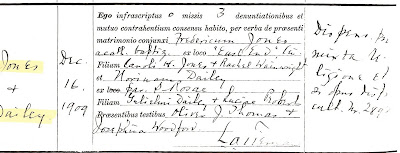 Jones
&
Dailey
Dec.
16.
1909
Ego infrascriptus o missis 3 denuntiationibus et
mutuo contrahentium consensu habito, per verba de præsenti
matrimonio conjunxi Fredericum Jones
acath. baptiz. ex loco "East End" in
Filium Caroli H. Jones & Rachel Wainwright
& Norinam Dailey
ex loco
Filiam Gulielmi Dailey & Roberts
Præsentibus testibus Oliver J. Thomas &
Josephina Woodford.
Dispens.
mixta
ligione et
disp. disp.
cult. N. 289.